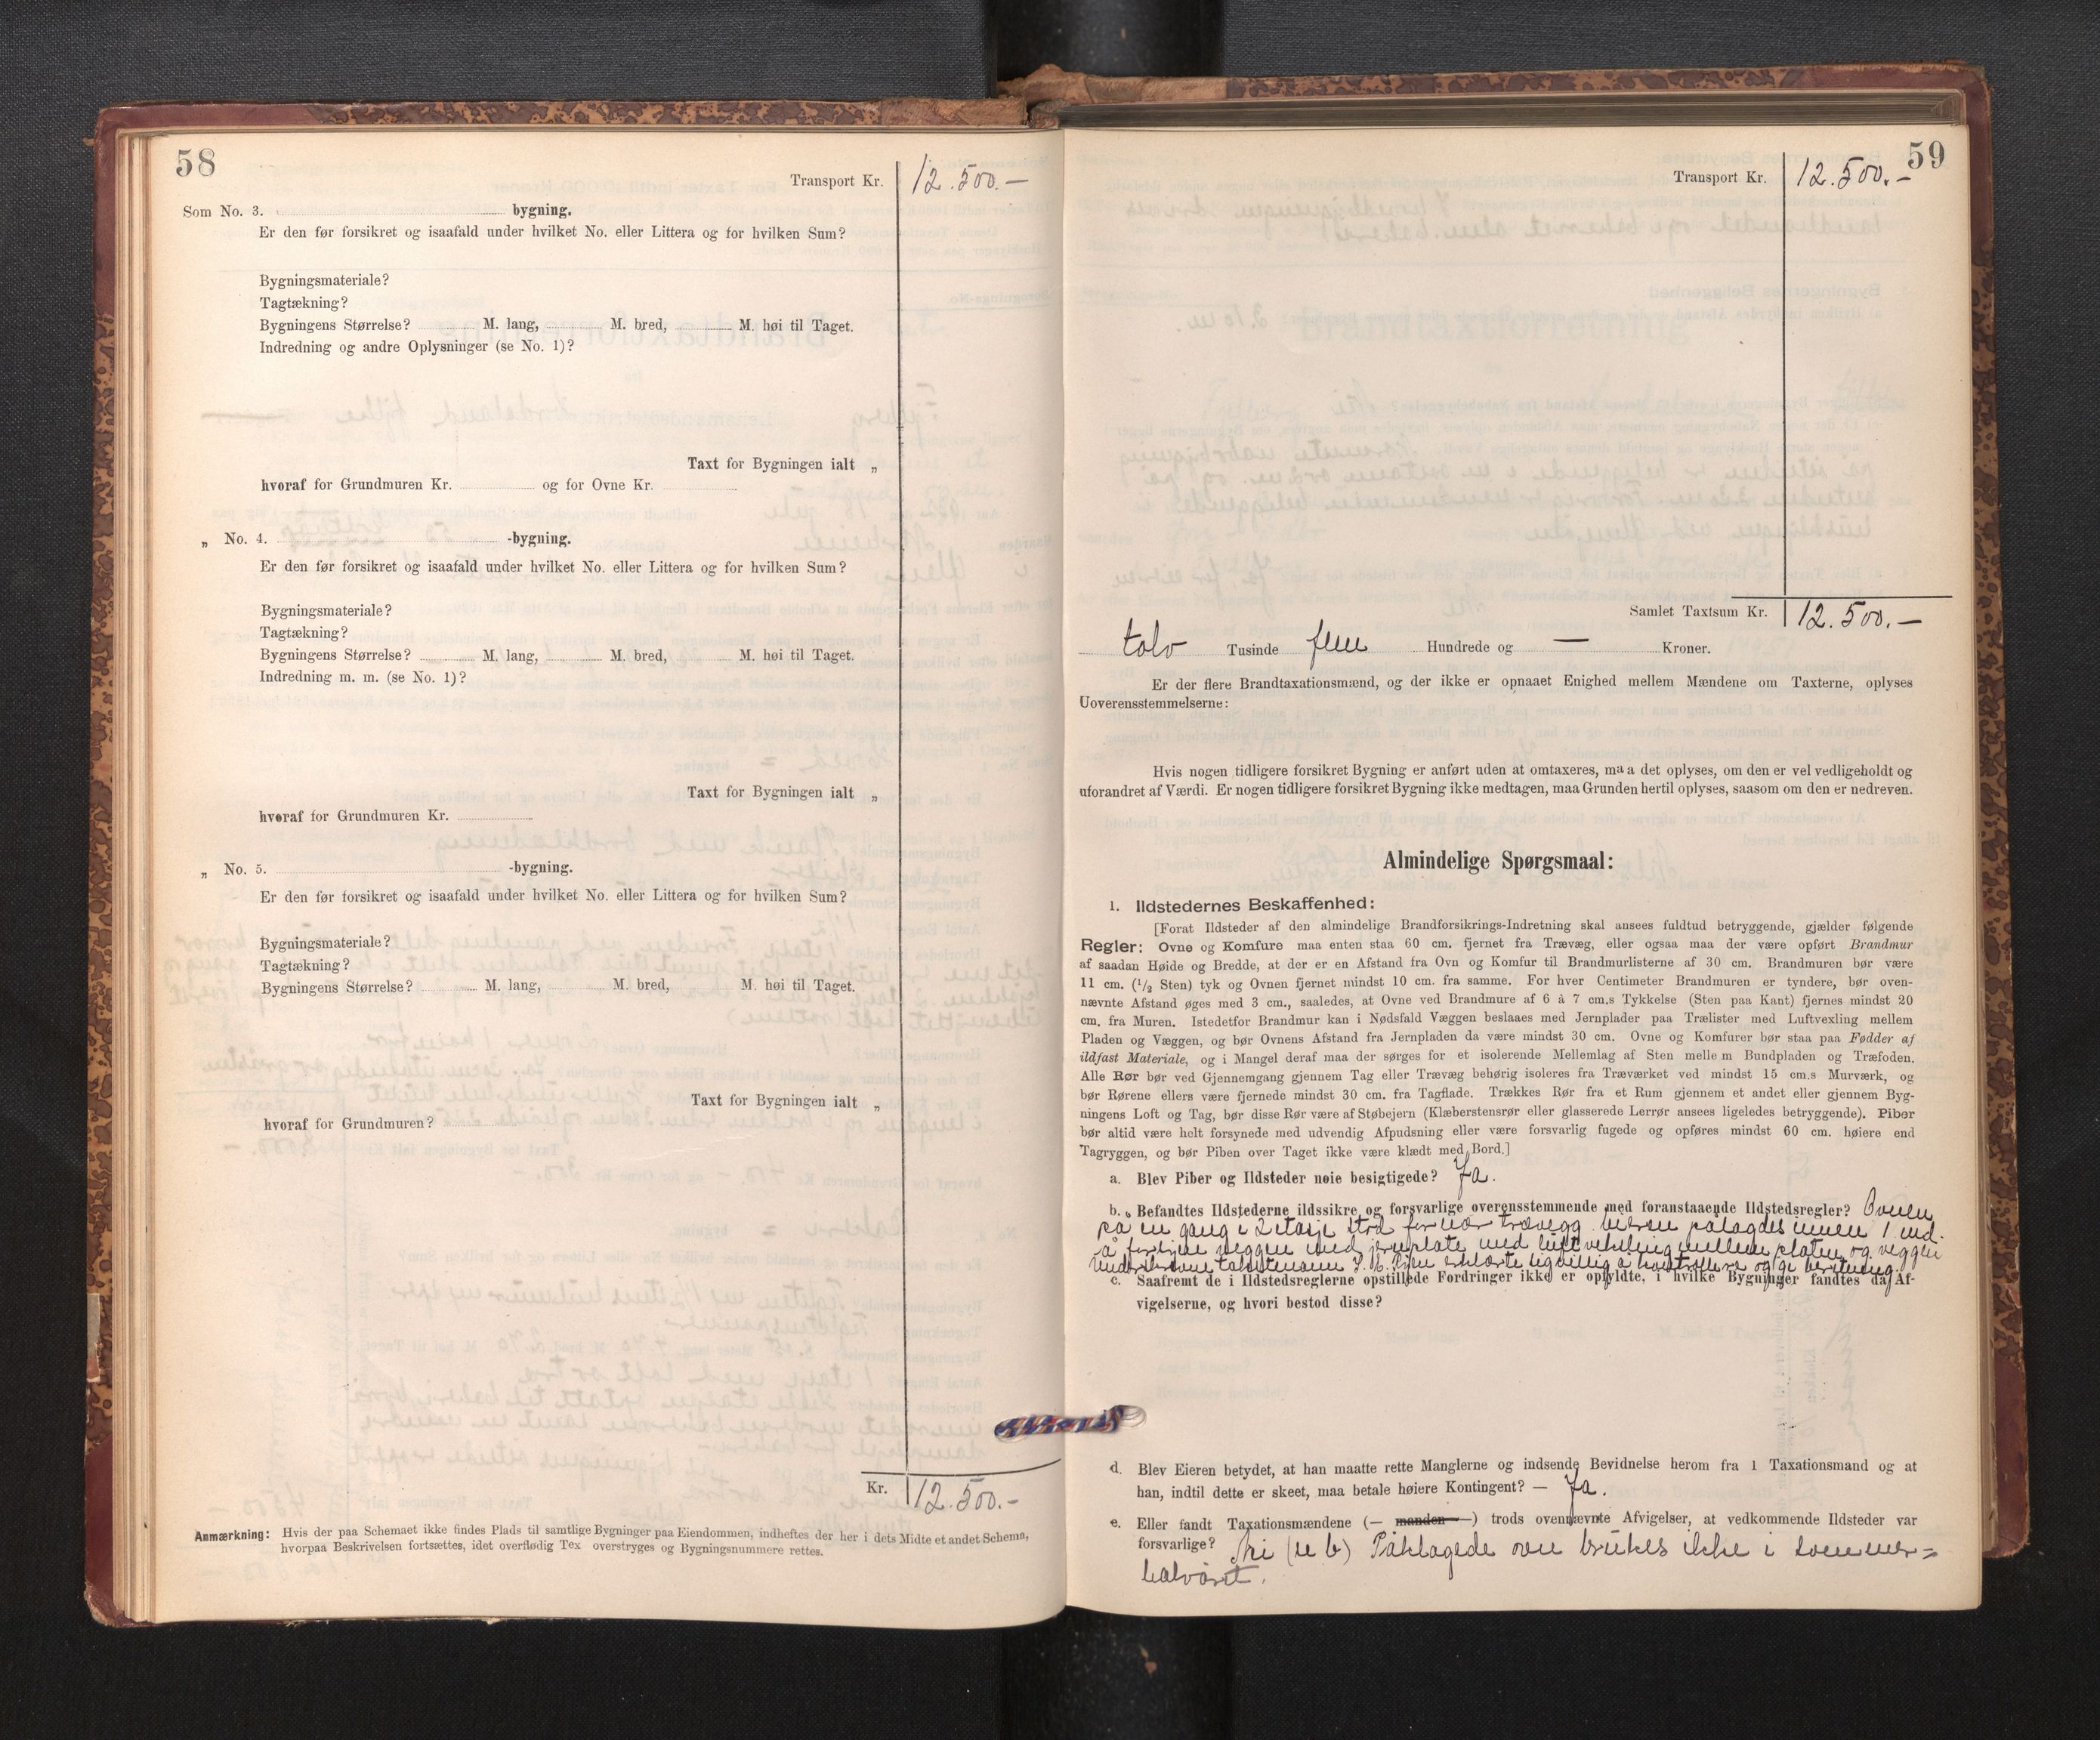 58
Transport Kr. 12.500.—
Som No. 3. bygning.
Er den før forsikret og isaafald under hvilket No. eller Littera og for hvilken Sum?
Bygningsmateriale?
Tagtækning?
Bygningens Størrelse? M. lang, M. bred, M. høi til Taget.
Indredning og andre Oplysninger (se No. 1)?
Taxt for Bygningen ialt „
hvoraf for Grundmuren Kr. og for Ovne Kr.
„ No. 4. -bygning.
Er den før forsikret og isaafald under hvilket No. eller Littera og for hvilken Sum?
Bygningsmateriale?
Tagtækning?
Bygningens Størrelse? M. lang, M. bred, M. høi til Taget.
Indredning m. m. (se No. 1)?
Taxt for Bygningen ialt „
hvoraf for Grundmuren Kr.
„ No. 5. -bygning.
Er den før forsikret og isaafald under hvilket No. eller Littera og for hvilken Sum?
Bygningsmateriale?
Tagtækning?
Bygningens Størrelse? M. lang, M. bred, M. høi til Taget.
Taxt for Bygningen ialt „
hvoraf for Grundmuren?
Kr. 12.500.—
Anmærkning: Hvis der paa Schemaet ikke findes Plads til samtlige Bygninger paa Eiendommen, indheftes der her i dets Midte et andet Schema,
hvorpaa Beskrivelsen fortsættes, idet overflødig Tex overstryges og Bygningsnummere rettes.
59
Transport Kr. 12.500.—
Samlet Taxtsum Kr. 12.500.—
tolv Tusinde fem Hundrede og — Kroner.
Er der flere Brandtaxationsmænd, og der ikke er opnaaet Enighed mellem Mændene om Taxterne, oplyses
Uoverensstemmelserne:
Hvis nogen tidligere forsikret Bygning er anført uden at omtaxeres, maa det oplyses, om den er vel vedligeholdt og
uforandret af Værdi. Er nogen tidligere forsikret Bygning ikke medtagen, maa Grunden hertil oplyses, saasom om den er nedreven.
Almindelige Spørgsmaal:
1. Ildstedernes Beskaffenhed:
[Forat Ildsteder af den almindelige Brandforsikrings-Indretning skal ansees fuldtud betryggende, gjælder følgende
Regler: Ovne og Komfure maa enten staa 60 cm. fjernet fra Trævæg, eller ogsaa maa der være opført Brandmur
af saadan Høide og Bredde, at der er en Afstand fra Ovn og Komfur til Brandmurlisterne af 30 cm. Brandmuren bør være
11 cm. (1/2 Sten) tyk og Ovnen fjernet mindst 10 cm. fra samme. For hver Centimeter Brandmuren er tyndere, bør oven-
nævnte Afstand øges med 3 cm., saaledes, at Ovne ved Brandmure af 6 à 7 cm.s Tykkelse (Sten paa Kant) fjernes mindst 20
cm. fra Muren. Istedetfor Brandmur kan i Nødsfald Væggen beslaaes med Jernplader paa Trælister med Luftvexling mellem
Pladen og Væggen, og bør Ovnens Afstand fra Jernpladen da være mindst 30 cm. Ovne og Komfurer bør staa paa Fødder af
ildfast Materiale, og i Mangel deraf maa der sørges for et isolerende Mellemlag af Sten mellem Bundpladen og Træfoden.
Alle Rør bør ved Gjennemgang gjennem Tag eller Trævæg behørig isoleres fra Træværket ved mindst 15 cm.s Murværk, og
bør Rørene ellers være fjernede mindst 30 cm. fra Tagflade. Trækkes Rør fra et Rum gjennem et andet eller gjennem Byg-
ningens Loft og Tag, bør disse Rør være af Støbejern (Klæberstensrør eller glasserede Lerrør ansees ligeledes betryggende). Piber
bør altid være helt forsynede med udvendig Afpudsning eller være forsvarlig fugede og opføres mindst 60 cm. høiere end
Tagryggen, og bør Piben over Taget ikke være klædt med Bord.]
a. Blev Piber og Ildsteder nøie besigtigede? Ja.
b. Befandtes Ildstederne ildssikre og forsvarlige overensstemmende med foranstaaende Ildstedsregler? Ovnen
på en gang i 2 etasje stod for nær trævegg. Eieren pålagdes innen 1 md.
å forsyne veggen med jernplate med luftveksling mellem platen og veggen
Undertegnede takstmann erklærte sig villig å kontrollere og gi beretning.
c. Saafremt de i Ildstedsreglerne opstillede Fordringer ikke er opfyldte, i hvilke Bygninger fandtes da Af-
vigelserne, og hvori bestod disse?
d. Blev Eieren betydet, at han maatte rette Manglerne og indsende Bevidnelse herom fra 1 Taxationsmand og at
han, indtil dette er skeet, maa betale høiere Kontingent? — Ja.
e. Eller fandt Taxationsmændene (— manden —) trods ovennævnte Afvigelser, at vedkommende Ildsteder var
forsvarlige? Nei (se b) Påklagede ovn brukes ikke i sommer=
halvåret.